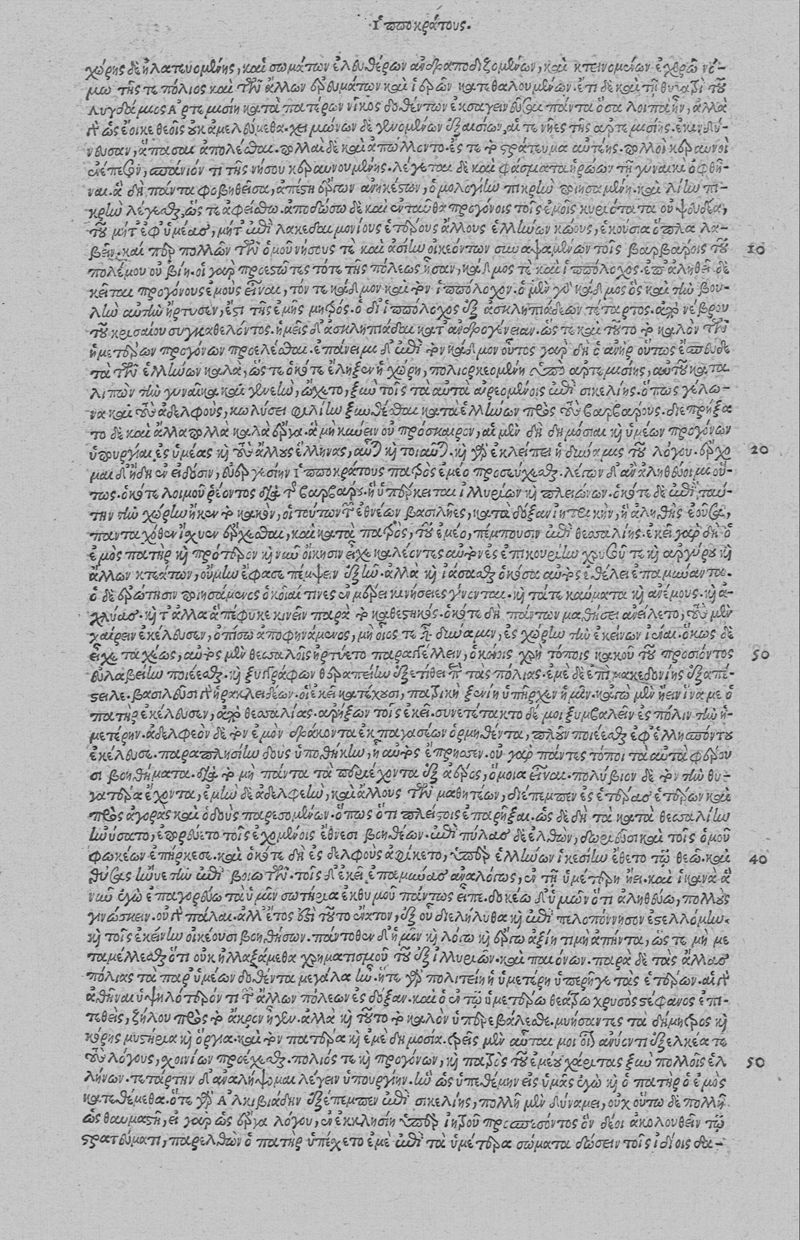 Ἱπποκράτους.
χώρης δὲ ἠλατευομένης, καὶ σωμάτων ἐλευθέρων ἀνδραποδιζομένων, καὶ κτεινομένων ἐχθρῶ νό-
μω τῆς τε πόλιος καὶ τῶν ἄλλων ἐρυμάτων καὶ ἱερῶν καταβαλουμένων. ἔτι δὲ καὶ τῇ
Λυγδάμιος Ἀρτεμισίη κατὰ πατέρων νῖκος δοθέντων πάντα ὅσα λοιπὰ ἦν, ἀλλὰ
δ' ὡς ἔοικε θεοῖς οὐκ ἀμελεύμεθα. χειμώνων δὲ γενομένων ἐξαισίων, αἵ τε νῆες τῆς Ἀρτεμισίης ἐκινδύ-
νευσαν, ἅπασαι ἀπολέσθαι. πολλαὶ δὲ καὶ ἀπώλοντο. ἔς τε τὸ στράτευμα αὐτέης. πολλοὶ κεραυνοὶ
ἐνέπεσον, σπάνιόν τι τῆς νήσου κεραυνουμένης. λέγεται δὲ καὶ φάσματα ἡρώων τῇ γυναικὶ ὀφθῆ-
ναι. ἃ δὴ πάντα φοβηθεῖσα, ἀπέστη ἔργων ἀνηκέστων, ὁμολογίην πικρὴν ποιησαμένη. καὶ λίην πι-
κρὴν λέγεσθαι, ὥς τε ἀφείσθω. ἀποδώσω δὲ καὶ ἐνταῦθα προγόνοις τοῖς ἐμοῖς κυριότατα οὐ ψευδέα,
τοῦ μήτ' ἐφ' ὑμέας, μήτ' ἐπὶ Λακεδαιμονίους ἑτέρους ἄλλους ἑλλήνων κώους, ἑκούσια ὅπλα λα-
βεῖν. καὶ περ πολλῶν τῶν ὁμοῦ νήσους τε καὶ ἀσίην οἰκεόντων συναψαμένων τοῖς βαρβάροις τοῦ 10
πολέμου οὐ βίη. οἱ γὰρ προεστῶτες τότε τῆς πόλεως ἦσαν, κάδμος τε καὶ ἱππόλοχος. ἐπ' ἀληθεῖ δὲ
κεῖται προγόνους ἐμοὺς εἶναι, τόν τε κάδμον καὶ τὸν ἱππόλοχον. ὁ μὲν γὰρ κάδμος ὃς καὶ τὴν βου-
λὴν αὐτὴν ἤρτυσεν, ἐστὶ τῆς ἐμῆς μητρός. ὁ δὲ ἱππόλοχος ἐξ ἀσκληπιάδεων τέταρτος. ἀπὸ νέβρου
τοῦ κρισαίου συγκαθελόντος. ἡμεῖς δ' ἀσκληπιάδαι κατ' ἀνδρογένειαν. ὥς τε καὶ τοῦτο τὸ καλὸν τῶν
ἡμετέρων προγόνων προελέσθαι. ἐπάνειμι δ' ἐπὶ τὸν κάδμον οὗτος γὰρ δὴ ὁ ἀνὴρ οὕτως ἔσπευδε
τὰ τῶν ἑλλήνων καλά, ὥς τε ὁκότε ἔληξεν ἡ χώρη, πολιορκεομένη ὑπὸ ἀρτεμισίης, αὐτοῦ κατα-
λιπὼν τὴν γυναῖκα καὶ γενεὴν, ᾤχετο, ξὺν τοῖς τὰ αὐτὰ αἱρεομένοις ἐπὶ σικελίης. ὅπως γέλω-
να καὶ τοὺς ἀδελφούς, κωλύσει φιλίην ξυνθέσθαι κατὰ ἑλλήνων πρὸς τοὺς βαρβάρους. διεπρήξα
το δὲ καὶ ἄλλα πολλὰ καλὰ ἔργα. ἃ μὴ καιρὸν οὐ πρόσκαιρον, αἱ μὲν δὴ δημόσιαι καὶ ὑμέων προγόνων
ὑπουργίαι ἐς ὑμέας καὶ τοὺς ἄλλους ἕλληνας, αὗται καὶ τοιαῦται. καὶ γὰρ ἐκλείπει ἡ δύναμις τοῦ λόγου. ἔρχο 20
μαι δ' ἤδη ἐν εἴδοσιν, εὐεργεσίην Ἱπποκράτους παιδὸς ἐμέο προσεύχεσθαι. λέγων δ' ἂν ἀληθεύοιμι οὕ-
τως. ὁκότε λοιμοῦ ῥέοντος διὰ τῆς βαρβάρου ἡ ὑπέρκειται ἰλλυριῶν καὶ παιόνων. ὁκότε δὲ ἐπὶ ταύ-
την τὴν χώρην ἧκον τὸ κακὸν, οἱ τούτων τῶν ἐθνέων βασιλῆες, κατὰ δόξαν ἰητρικὴν, ἢ ἀληθὴς ἐοῦσα,
πανταχόθεν ἴσχυεν ἔρχεσθαι, καὶ κατὰ παιδὸς, τοῦ ἐμέο, πέμπουσιν ἐπὶ θεσσαλίης. ἐκεῖ γὰρ δὴ ὁ
ἐμὸς πατὴρ καὶ πρότερον καὶ νῦν οἴκησιν εἶχε καλέοντες αὐτὸν ἐς ἐπικουρίην χρυσοῦ τε καὶ ἀργύρου καὶ
ἄλλων κτεάτων, οὔμην ἔφασε πέμψειν ἐξ ὧν. ἀλλὰ καὶ οἴσασθαι ὁκόσα αὐτὸς ἐθέλει ἐπαμύνοντα.
ὁ δὲ ἐρώτησιν ποιησάμενος ὁκοῖαί τινες ἐν μέρει κινήσιες γίνονται. κατά τε καύματα καὶ ἀνέμους. καὶ ἀ-
χλύας. καὶ τἄλλα ἃ πέφυκε κινεῖν παρὰ τὸ καθεστηκός. ὁκότε δὴ πάντων μαθήσει ἀνείλετο, τοὺς μὲν
χαίρειν ἐκέλευσεν, ὀπίσω ἀποφηνάμενος, μὴ οἷός τε ᾖ δύναμιν, ἐς χώρην τὴν ἐκείνων ἰέναι. ὅκως δὲ
εἶχε ταχέως, αὐτὸς μὲν θεσσαλοῖς ἠρτύετο παραγγέλλειν, ὁκοίοις χρὴ τόποις κακοῦ τοῦ προσιόντος 30
εὐλαβείην ποιέεσθαι. καὶ ξυγγράφων θεραπείην ἐξετίθει περὶ τὰς πόλιας. ἐμὲ δὲ ἐπὶ μακεδονίης ἐξαπέ-
στειλε. βασιλεῦσι γὰρ ἡρακλειδέων. οἳ ἐκεῖ κατέχουσι, πατρικὴ ξενίη ὑπῆρχεν ἡμῖν. καὶ τὸ μὲν ᾔειν ἵνα με ὁ
πατὴρ ἐκέλευσεν, ἀπὸ θεσσαλίας. ἀρήξων τοῖς ἐκεῖ. συνετέτακτο δέ μοι ξυμβαλεῖν ἐς πόλιν τὴν ἡ-
μετέρην. ἀδελφεὸν δὲ τὸν ἐμὸν δράκοντα ἐκ παγασέων ὁρμηθέντα, πλόον ποιέεσθαι ἐφ' ἑλλησπόντου
ἐκέλευσε. παραπλησίην δοὺς ὑποθήκην, ᾗ αὐτὸς ἔπρησεν. οὐ γὰρ πάντες τόποι τὰ αὐτὰ φέρου
σι βοηθήματα. διὰ τὸ μὴ πάντα τὰ περιέχοντα ἐξ ἀέρος, ὅμοια εἶναι. πολύβιον δὲ τὸν τὴν θυ-
γατέρα ἔχοντα, ἐμὴν δὲ ἀδελφεὴν, καὶ ἄλλους τῶν μαθητέων, διέπεμπεν ἐς ἑτέρας ἑτέρων καὶ
πρὸς ἀγορὰς καὶ ὁδοὺς παρεσομένων. ὅπως ὅτι πλείστοις ἐπαρήξαι. ὡς δὲ δὴ τὰ κατὰ θεσσαλίην
ἠνύσατο, ἐπορεύετο τοῖς ἐχομένοις ἔθνεσι βοηθέων. ἐπὶ πύλας δὲ ἐλθὼν, δωριεῦσι καὶ τοῖς ὁμοῦ
φωκέων ἐπήρκεσε. καὶ ὁκότε δὴ ἐς δελφοὺς ἀφίκετο, ὑπὲρ ἑλλήνων ἱκεσίην ἔθετο τῷ θεῷ. καὶ 40
θύσας ἤνυε τὴν ἐπὶ βοιωτῶν. τοῖς δ' ἐκεῖ ἐπαμύνας ἀναλόγως, ἐν τῇ ὑμετέρῃ ᾔει. καὶ ἱκανὰ ἃ
νῦν ἐγὼ ἐπαγορεύω τὰ ὑμῶν σωτήρια ἐκ θυμοῦ πάντως εἶπε. δοκέω δ' ὑμῶν ὅτι ἀληθεύω, πολλοὺς
γινώσκειν. οὐ γὰρ πάλαι. ἀλλ' ἔτος ἐστὶ τοῦτο ἔνατον, ἐξ οὗ διελήλυθα καὶ ἐπὶ πελοπόννησον ἐστελλόμην.
καὶ τοῖς ἐκείνην οἰκέουσι βοηθήσων. πάντοθεν δ' ἡμῖν καὶ λόγῳ καὶ ἔργῳ ἀξίη τιμὴ ἀπήντα, ὥς τε μή με
ταμέλλεσθ ὅτι οὐκ ἠλλαξάμεθα χρηματισμοῦ τοῦ ἐξ ἰλλυριῶν. καὶ παιόνων. παρὰ δὲ τὰς ἄλλας
πόλιας τὰ παρ' ὑμέων δοθέντα μεγάλα ἦν. ἥ τε γὰρ πολιτείη ἡ ὑμετέρη ὑπερῆγε τὰς ἑτέρων. αἱ γὰρ
ἀθῆναι ὑψηλότερόν τι τῶν ἄλλων πόλεων ἐς δόξαν. καὶ ὁ ἐν τῷ ὑμετέρῳ θεάτρῳ χρυσὸς στέφανος ἐπι-
τεθεὶς, ζήλου πρὸς τὸ ἄκρον ἦγεν. ἀλλὰ καὶ τοῦτο τὸ καλὸν ὑπερεβάλεσθε. μυήσαντες τὰ δήμητρος καὶ
κόρης μυστήρια καὶ ὄργια. καὶ τὸν πατέρα καὶ ἐμὲ δημοσία. τρεῖς μὲν αὗται μοι
τοὺς λόγους, προέχεσθαι. πόλιός τε καὶ προγόνων, καὶ παιδὸς τοῦ ἐμέου χάριτας ξὺν πολλοῖς ἑλ 50
λήνων. τετάρτην δ' ἀναλήψομαι λέγειν ὑπουργίην. ἣν ὡς ὑπεθέμην εἰς ὑμᾶς ἐγὼ καὶ ὁ πατὴρ ὁ ἐμὸς
κατεθέμεθα. ὅτε γὰρ Ἀλκιβιάδην ἐξέπεμπεν ἐπὶ σικελίης, πολλῇ μὲν δυνάμει, οὐχ οὕτω δὲ πολλῇ
ὡς θαυμαστῇ, εἰ γὰρ ὡς ἔργα λόγου, ἐν ἐκκλησίῃ ὑπὲρ ἰητροῦ προσπεσόντος ὃν δέοι ἀκολουθεῖν τῷ
στρατεύματι, παρελθὼν ὁ πατὴρ ὑπέσχετο ἐμὲ ἐπὶ τὰ ὑμέτερα σώματα δώσειν τοῖς ἰδίοις δα-